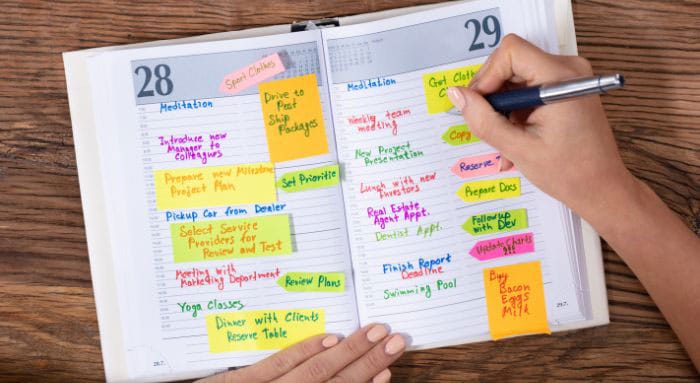 28
Sport Clothes
Meditation
Drive to
Post
Ship
Packages
Introduce new
Manager to
Prepare new Milestone
Project Plan
Set Prioritie
Pickup Car from Dealer
Select Service
Providers for
Review and Test
Meeting with
Marketing Department
Review Plans
Yoga Classes
Dinner with Clients
Reserve Table
29
Meditation
Get Clothe
Weekly team
meeting
Copy
New Project
Presentation
Reserve
Lunch with new
Investors
Prepare Docs
Real Estate
Agent Appt.
Followup
with Dev
Dentist Appt.
Update Charts
Finish Report
Deadline
Swimming Pool
Buy
Bacon
Eggs
Milk